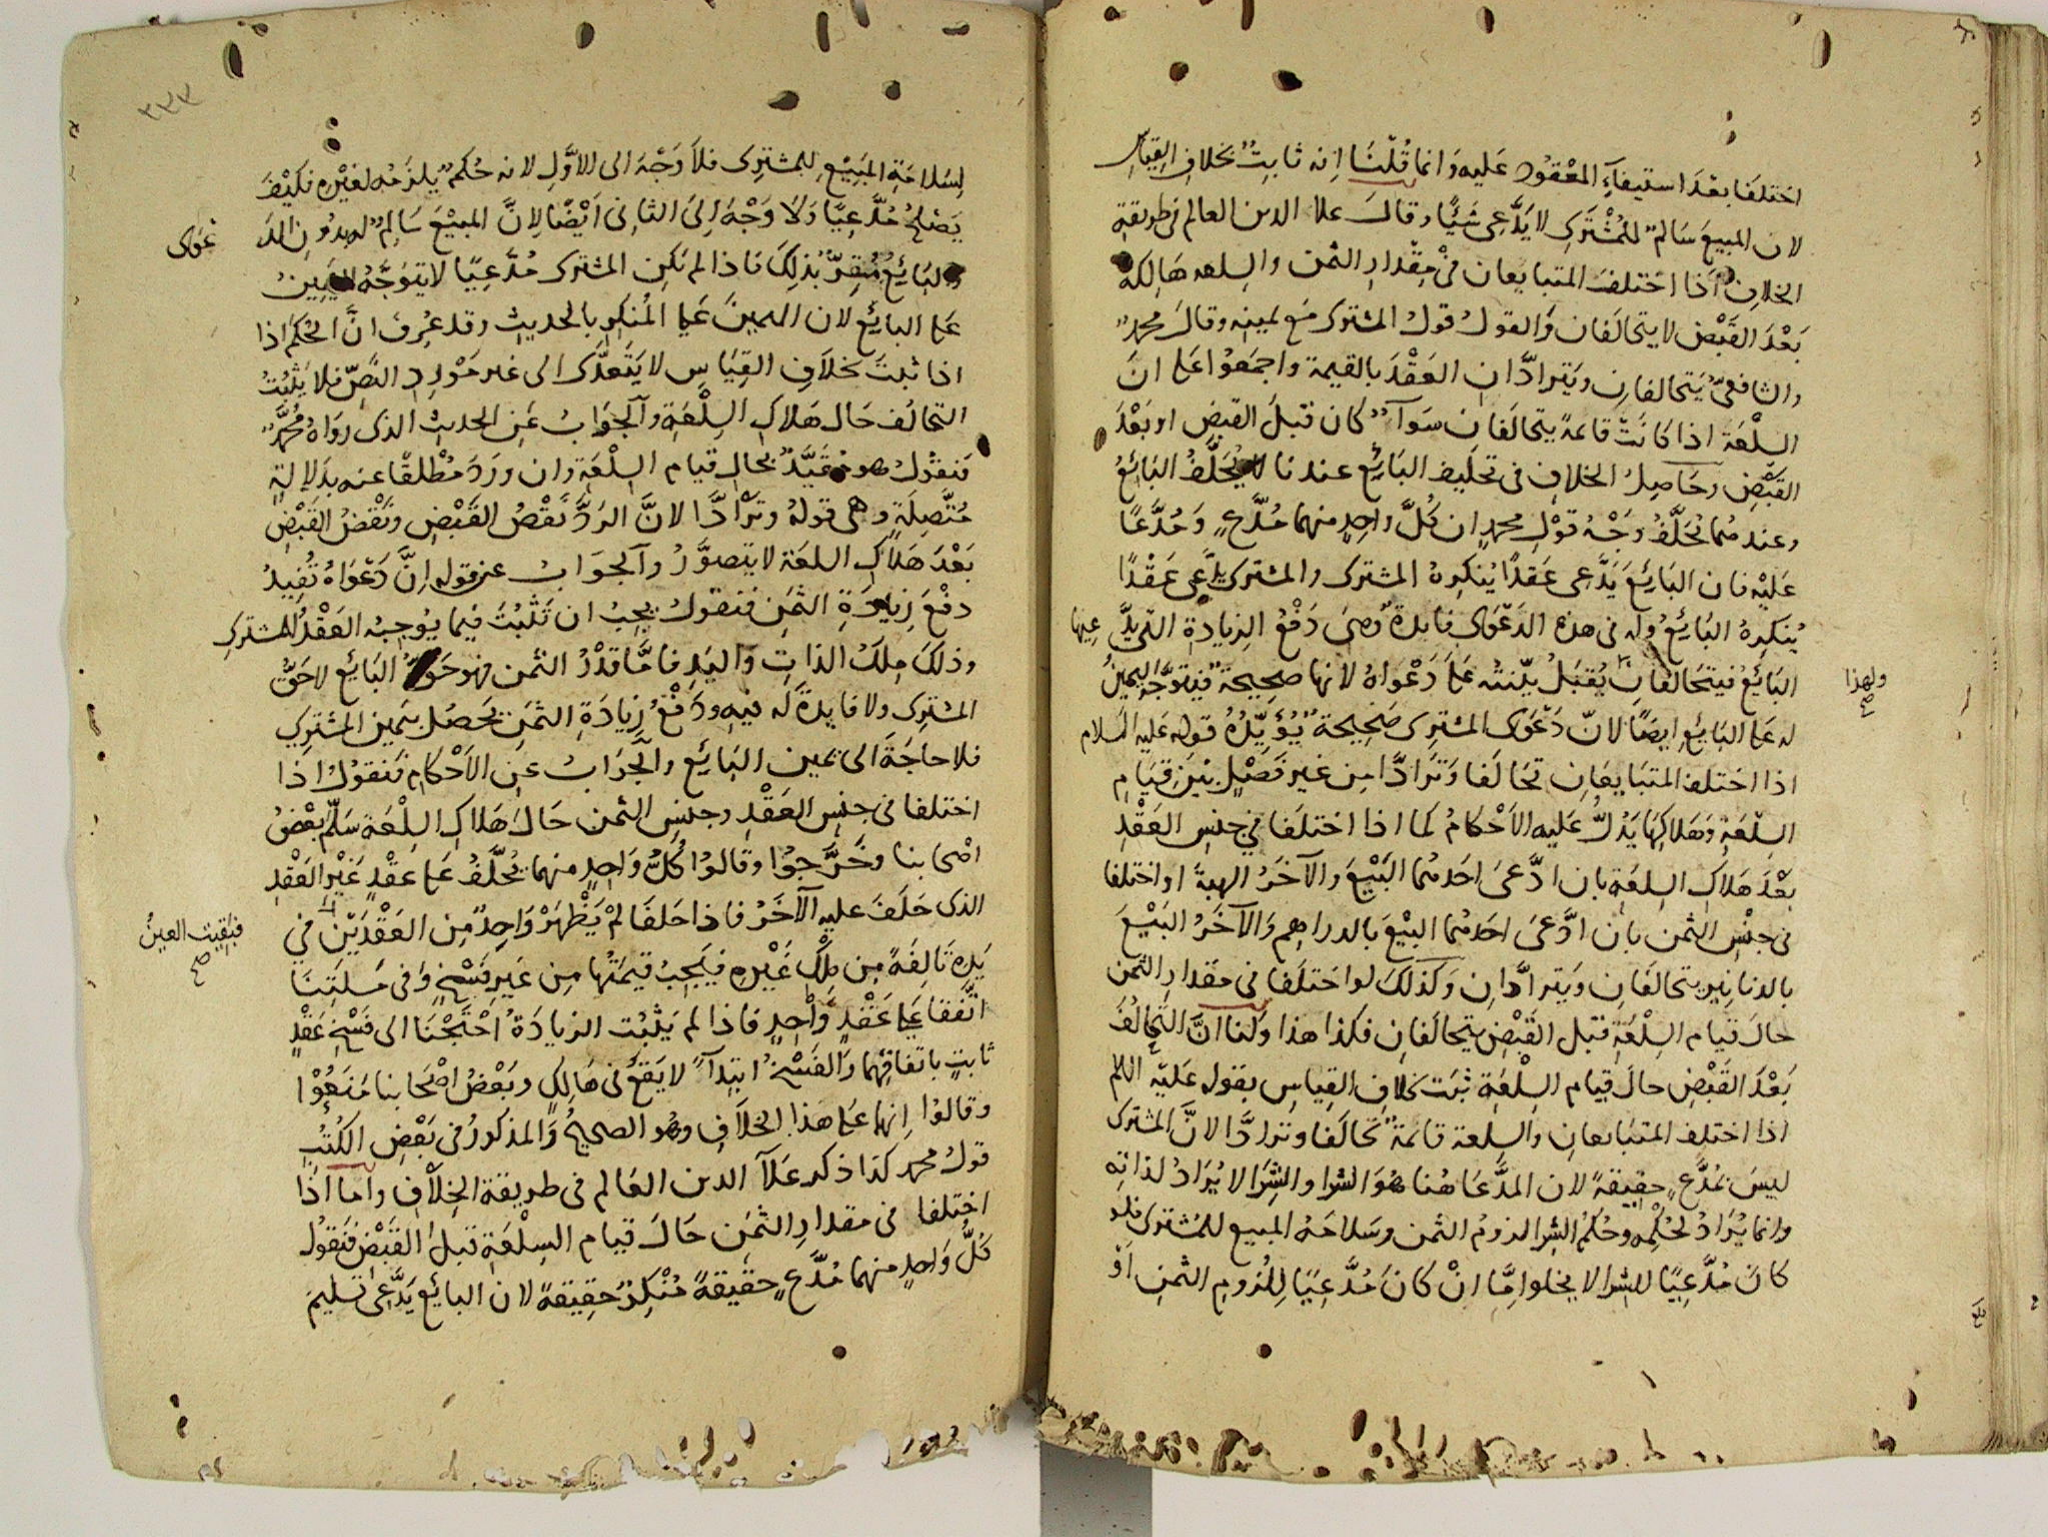 اختلفا بعد استيفاء المعقود عليه وانما قلنا انه ثابت بخلاف القياس
لان المبيع سالم للمشترى لا يدعى شيئا وقال علا الدين العالم فى طريقة
الخلاف اذا اختلف المتبايعان فى مقدار الثمن والسلعه هالكة
بعد القبض لا يتحالفان والقول قول المشترى مع يمينه وقال محمد
والشافعى يتحالفان ويترادان العقد بالقيمة واجمعوا على ان
السلعة اذا كانت قائمة يتحالفان سوآء كان قبل القبض او بعد
القبض وحاصل الخلاف فى تحليف البائع عندنا لا يحلف البائع
وعندهما يحلف وجه قول محمد ان كل واحد منهما مدع ومدعا
عليه فان البائع يدعى عقدا ينكره المشترى والمشترى يدعى عقدا
ينكره البائع وله فى هذه الدعوى فايدة وهى دفع الزيادة التى يدعيها
البائع فيتحالفان ولهذا يقبل بينته على دعواه لانها صحيحة فيتوجه اليمين
له على البائع ايضا لان دعوى المشترى صحيحة يؤيده قوله عليه السلام
اذا اختلف المتبايعان تحالفا وترادا من غير فصل بين قيام
السلعة وهلاكها يدل عليه الاحكام كما اذا اختلفا فى جنس العقد
بعد هلاك السلعة بان ادعى احدهما البيع والآخر الهبة او اختلفا
فى جنس الثمن بان ادعى احدهما البيع بالدراهم والآخر البيع
بالدنانير يتحالفان ويترادان وكذلك لو اختلفا فى مقدار الثمن
حال قيام السلعة قبل القبض يتحالفان فكذا هذا ولنا ان التحالف
بعد القبض حال قيام السلعة ثبت بخلاف القياس بقوله عليه السلم
اذا اختلف المتبايعان والسلعة قائمة تحالفا وترادا لان المشترى
ليس بمدع حقيقة لان المدعا هنا هو الشرا والشرا لا يراد لذاته
وانما يراد لحكمه وحكم الشرا لزوم الثمن وسلامة المبيع للمشترى فلو
كان مدعيا للشرا لا يخلوا اما ان كان مدعيا للزوم الثمن او
٣٣٣
لسلامة المبيع للمشترى فلا وجه الى الاول لانه حكم يلزمه لغيره فكيف
يصلح مدعيا ولا وجه الى الثانى ايضا لان المبيع سالم له بدون الدعوى
والبائع مقر بذلك فاذا لم يكن المشترى مدعيا لا يتوجه اليمين
على البائع لان اليمين على المنكر بالحديث وقد عرف ان الحكم اذا
اذا ثبت بخلاف القياس لا يتعدى الى غير مورد النص فلا يثبت
التحالف حال هلاك السلعة والجواب عن الحديث الذى رواه محمد
فنقول هو مقيد بحال قيام السلعة وان ورد مطلقا عنه بدلالة
متصلة وهى قوله وترادا لان الرد نقص القبض ونقض القبض
بعد هلاك السلعة لا يتصور والجواب عن قوله ان دعواه تفيد
دفع زيادة الثمن فنقول يجب ان تثبت فيما يوجبه العقد للمشترى
وذلك ملك الذات واليد فاما قدر الثمن فهو حق البائع لا حق
المشترى ولا فايدة له فيه ودفع زيادة الثمن يحصل بيمين المشترى
فلا حاجة الى يمين البائع والجواب عن الاحكام فنقول اذا
اختلفا فى جنس العقد وجنس الثمن حال هلاك السلعة سلم بعض
اصحابنا وخرجوا وقالوا كل واحد منهما يحلف على عقد غير العقد
الذى حلف عليه الآخر فاذا حلفا لم يظهر واحد من العقدين فبقيت العين فى
يده تالفة من ملك غيره فيجب قيمتها من غير فسخ وفى مسلتنا
اتفقا على عقد واحد فاذا لم يثبت الزيادة احتجنا الى فسخ عقد
ثابت باتفاقهما والفسخ ابتدآء لا يقع فى هالك وبعض اصحابنا منعوا
وقالوا انها على هذا الخلاف وهو الصحيح والمذكور فى بعض الكتب
قول محمد كذا ذكر علآ الدين العالم فى طريقة الخلاف واما اذا
اختلفا فى مقدار الثمن حال قيام السلعة قبل القبض فنقول
كل واحد منهما مدع حقيقة منكر حقيقة لان البائع يدعى تسليم